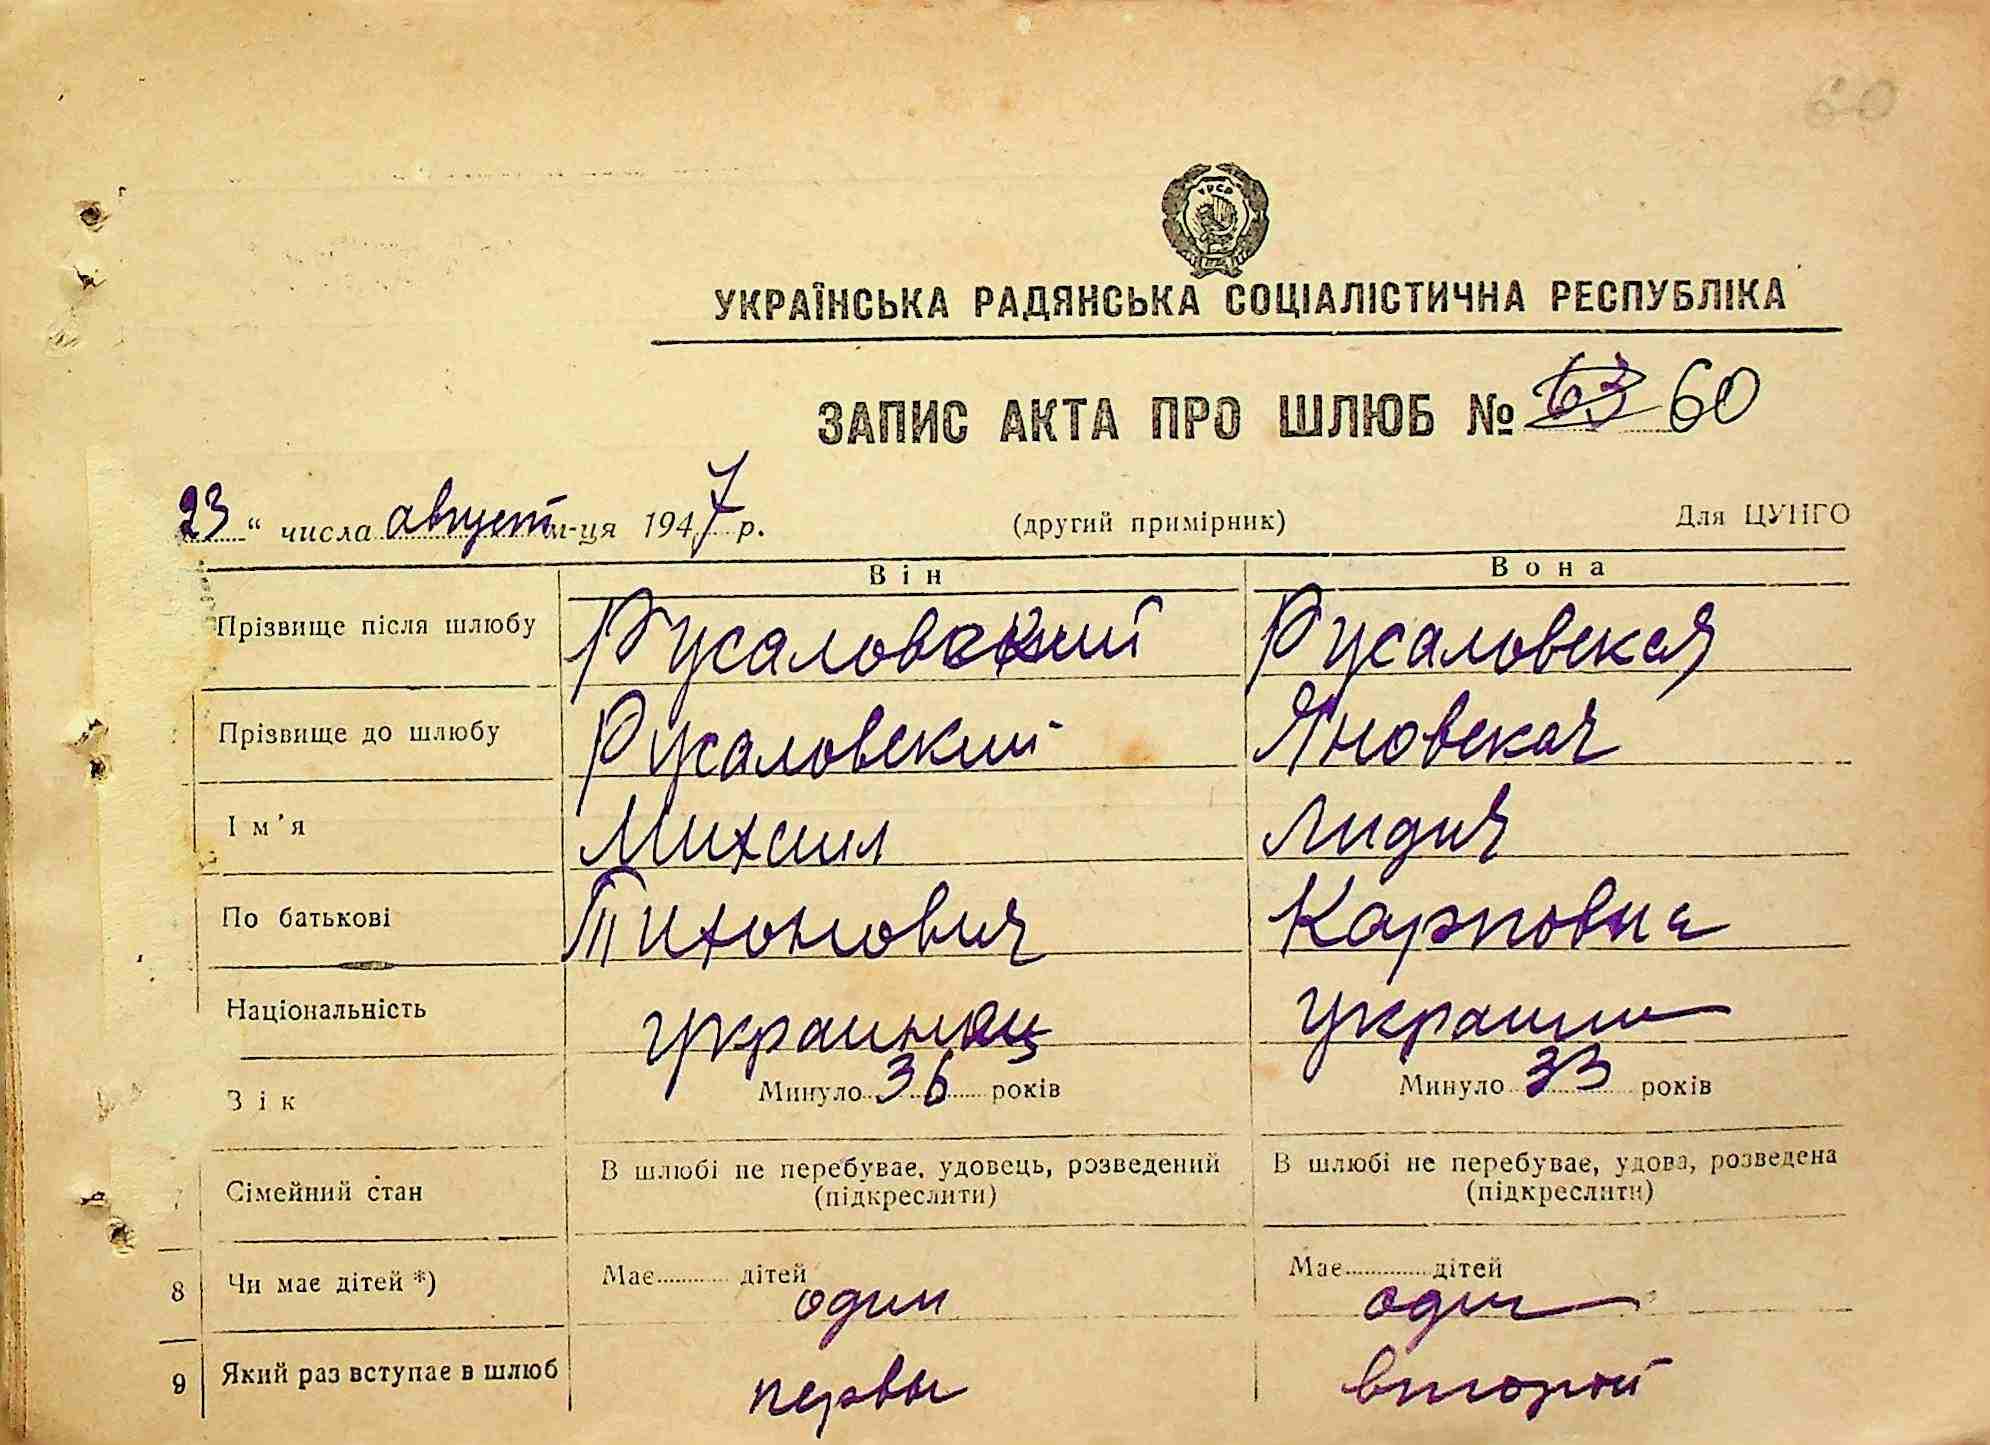 60
УКРАЇНСЬКА РАДЯНСЬКА СОЦІАЛІСТИЧНА РЕСПУБЛІКА
ЗАПИС АКТА ПРО ШЛЮБ № 63 60
23 " числа август м-ця 1947 р. (другий примірник) Для ЦУНГО
Він Вона
Прізвище після шлюбу Русаловский Русаловская
Прізвище до шлюбу Русаловский Яновская
Ім'я Михаил Лидия
По батькові Тихонович Карповна
Національність украинец украин
Вік Минуло 36 років Минуло 33 років
7 Сімейний стан В шлюбі не перебуває, удовець, розведений (підкреслити) В шлюбі не перебуває, удова, розведена (підкреслити)
8 Чи має дітей *) Має дітей один Має дітей один
9 Який раз вступає в шлюб первы второй